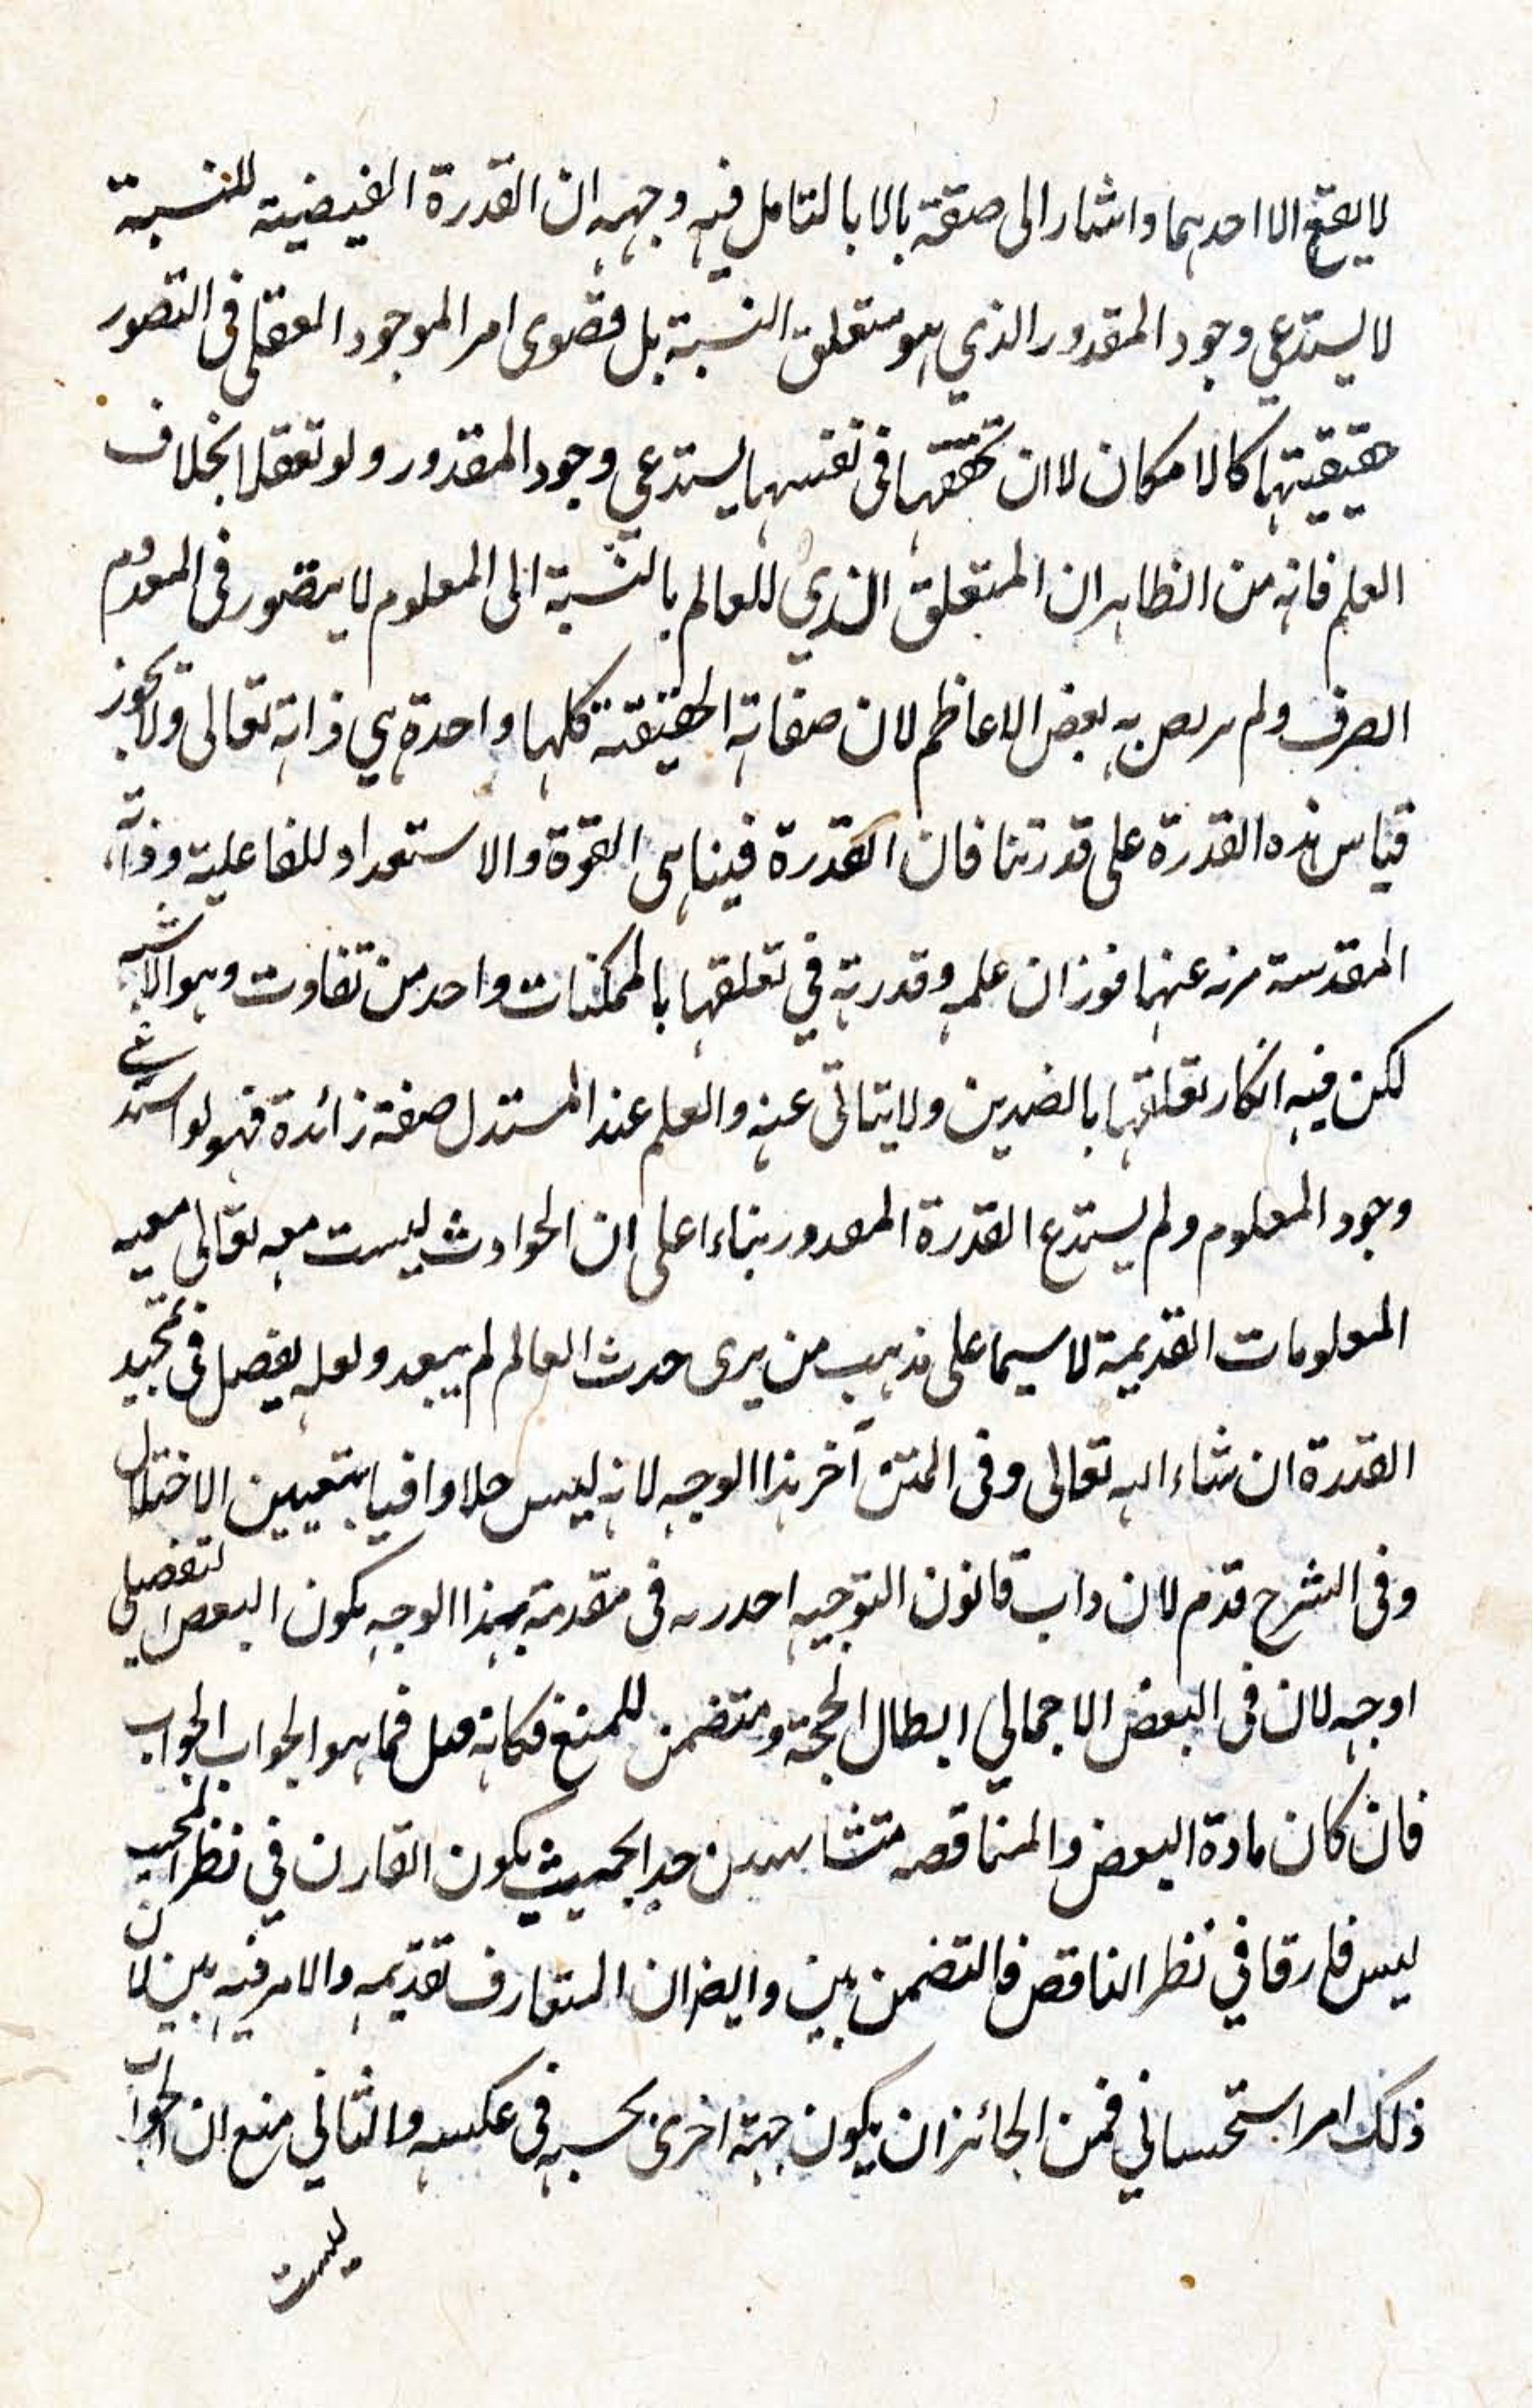 لا يقع الا احدهما واشار الى صقة بالا بالتامل فيه وجهه ان القدرة الفيضية للنسبة
لا يستدعي وجود المقدور الذي هو متعلق النسبة بل قصوى امر الموجود العقلي فى التصور
حقيقيتها كالامكان لا ان تحققها فى نفسها يستدعي وجود المقدور ولو تعقلا بخلاف
العلم فانه من الظاهر ان المتعلق الذي للعالم بالنسبة الى المعلوم لا يتصور فى المعدوم
الصرف ولم يرض به بعض الاعاظم لان صفاته الحقيقة كلها واحدة هي ذاته تعالى ولا يجوز
قياس هذه القدرة على قدرتنا فان القدرة فينا هى القوة والاستعداد للفاعلية وذاته
المقدسة منزه عنهما فوزان علمه وقدرته في تعلقها بالممكنات واحد من تفاوت وهو الاشبه
لكن فيه انكار تعلقها بالضدين ولا يتاتى عنه والعلم عند المستدل صفة زائدة فهو لو استدعي
وجود المعلوم ولم يستدع القدرة المقدور بناءا على ان الحوادث ليست معه تعالى معيه
المعلومات القديمة لا سيما على مذهب من يرى حدث العالم لم يبعد ولعله يفصل فى تمجيد
القدرة ان شاء الله تعالى وفى المتن آخر هذا الوجه لانه ليس حلا وافيا بتعيين الاختلال
وفى الشرح قدم لان داب قانون التوجيه احدره فى مقدمة بهذا الوجه يكون النقض التفصيلي
اوجه لان فى النقض الاجمالي ابطال الحجة ومتضمن للمنع فكانه قيل فما هو الجواب الجواب
فان كان مادة النقض والمناقصه متشابهين جدا بحيث يكون الفارق في نظر المجيب
ليس فارقا في نظر الناقض فالتضمن بين وايضا ان المتعارف تقديمه والامر فيه بين لان
ذلك امر استحساني فمن الجائز ان يكون جهة اخرى بحسبه فى عكسه والثاني منع ان الجواب
ليست